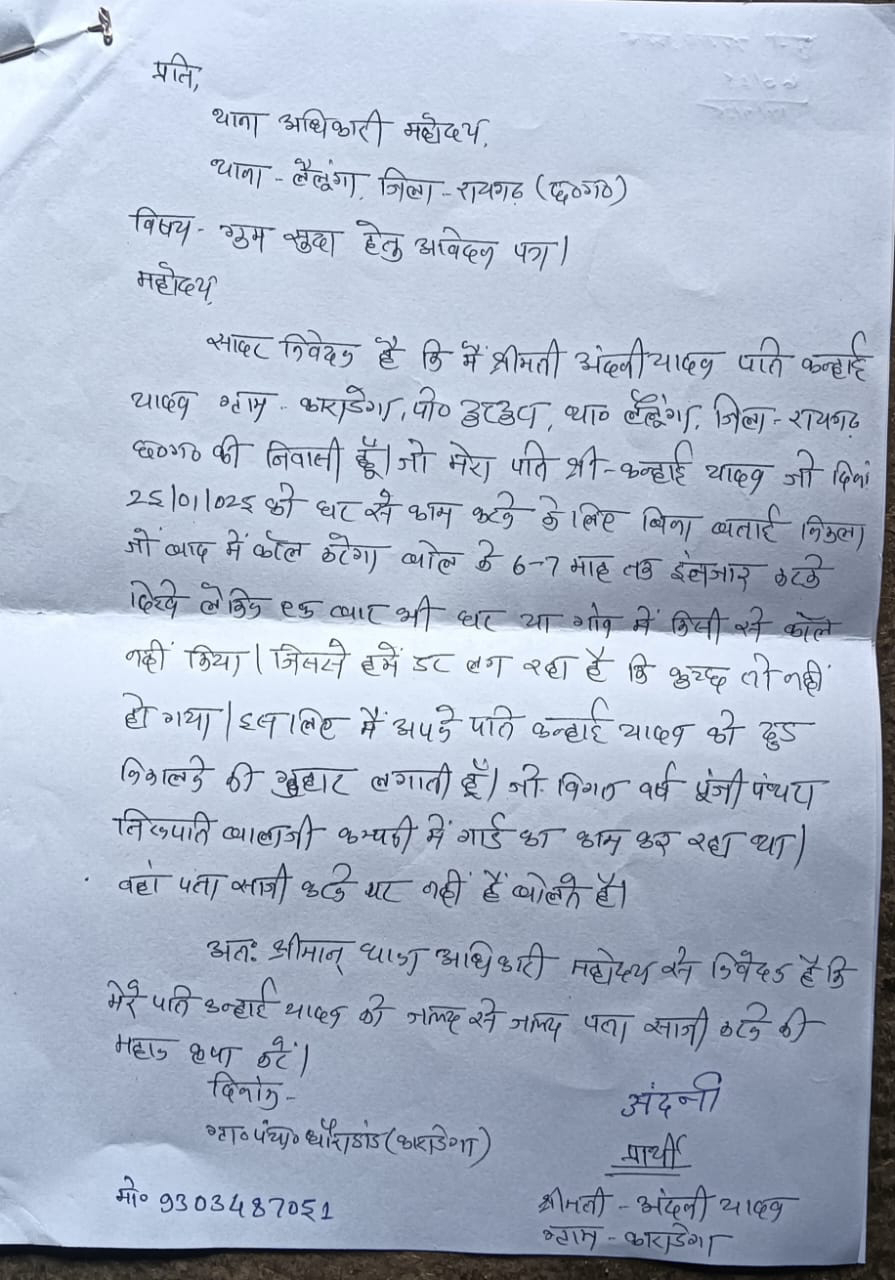 प्रति,
थाना अधिकारी महोदय,
थाना - लैलूंगा, जिला - रायगढ़ (छ०ग०)
विषय - गुम सुदा हेतु आवेदन पत्र।
महोदय,
सादर निवेदन है कि मैं श्रीमती अंदनी यादव पति कन्हाई
यादव ग्राम - काराडेगा, पो० कुटकुट, था० लैलूंगा, जिला - रायगढ़
छ०ग० की निवासी हूँ। जो मेरा पति श्री - कन्हाई यादव जो दिनां
25/01/025 को घर से काम करने के लिए बिना बताई निकला
जो बाद में कॉल करेगा बोल के 6-7 माह तक इंतजार करके
देखे लेकिन एक बार भी घर या गांव में किसी से कॉल
नहीं किया। जिससे हमें डर लग रहा है कि कुच्छ तो नहीं
हो गया। इसलिए मैं अपने पति कन्हाई यादव को ढुड
निकालने की गुहार लगाती हूँ। जो विगत वर्ष पूंजी पंथरा
तिरूपति बालाजी कम्पनी में गार्ड का काम कर रहा था।
वहां पता साजी करने पर नहीं हैं बोलते हैं।
अतः श्रीमान् थाना अधिकारी महोदय से निवेदन है कि
मेरे पति कन्हाई यादव को जल्द से जल्द पता साजी करने की
महान कृपा करें।
दिनांक -
ग्रा० पंचा० (काराडेगा)
अंदनी
प्रार्थी
श्रीमती - अंदनी यादव
ग्राम - काराडेगा
मो० 9303487051